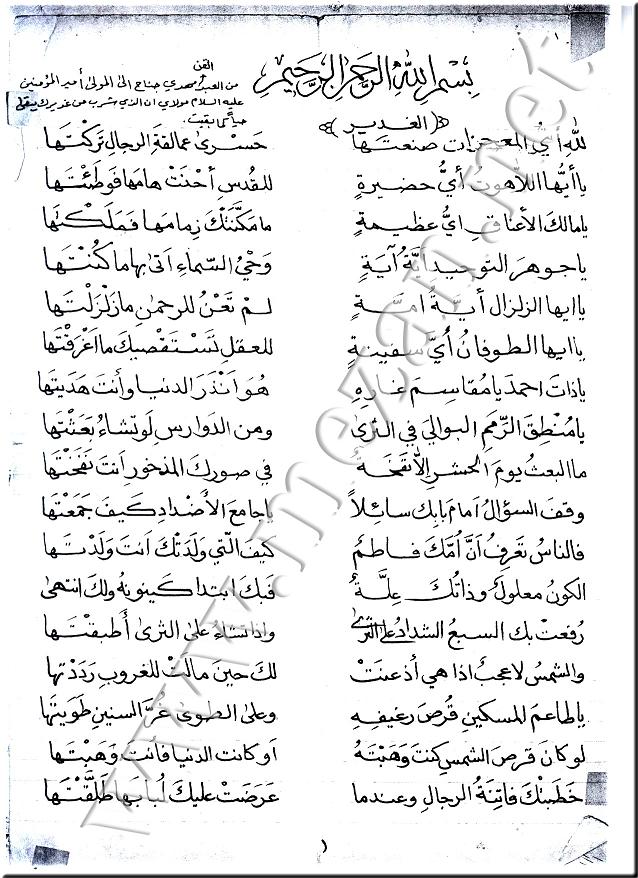 بسم الله الرحمن الرحيم
الفن
من العبد مهدي جناح الى المولى أمير المؤمنين
عليه السلام مولاي ان الذي شرب من غديرك يبقى
حيا كما بقيت.
﴿ الغدير ﴾
لله أيُّ المعجزات صنعتها حَسْرى عمالقةِ الرجال تركْتها
يا أيُّها اللّاهوتُ أيُّ حضيرةٍ للقدسِ أحْنَتْ هامَها فوَطِئْتَها
يا مالك الأعناقِ ايُّ عظيمةٍ ما مكَّنَتْكَ زِمامَها فمَلكْتَها
يا جوهرَ التوحيدِ أيّةُ آيةٍ وَحْيُ السّماءِ أتى بها ما كُنْتَها
يا ايها الزلزال أيّةُ امّةٍ لمْ تَعْنُ للرحمنِ ما زلْزَلْتَها
يا ايها الطوفانُ أيُّ سفينةٍ للعقلِ تَسْتَقْصيكَ ما اغرَقْتَها
يا ذاتَ احمدَ يا مُقاسِمَ غارِهِ هُوَ أنْذَرَ الدنيا وأنتَ هَدَيتَها
يا مُنطِقَ الرِّممِ البوالي في الثرى ومن الدوارسِ لَو تشاءُ بَعَثْتَها
ما البعثُ يومَ الحشرِ إلّا نفخةُ في صورِكَ المذخورِ انتَ نَفَخْتَها
وقفَ السؤالُ امامَ بابِكَ سائِلاً يا جامعَ الأضدادِ كيفَ جَمَعْتَها
فالناسُ تعرِفُ أنَّ أُمَّكَ فاطمٌ كيفَ الّتي ولَدَتْكَ انتَ ولَدْتَها
الكونُ معلولٌ وذاتُكَ عِلَّةٌ فبكَ ابتدا كينونةً ولكَ انتهى
رُفعتْ بك السبعُ الشدادُ على الثرى واذا تشاءُ على الثرى أطبقْتَها
والشمسُ لا عجبٌ اذا هي أذعنَتْ لكَ حينَ مالَتْ للغروبِ رَدَدْتها
يا طاعمَ المسكينِ قُرصَ رغيفِهِ وعلى الطوى غُرَّ السنينِ طَوَيتَها
لو كانَ قرصَ الشمسِ كنتَ وَهَبْتَهُ أو كانت الدنيا فأنتَ وهَبْتَها
خَطَبتْكَ فاتِنَةُ الرجالِ وعندما عَرَضَتْ عليكَ لُبابَها طَلَّقْتَها
١
www.mezan.net